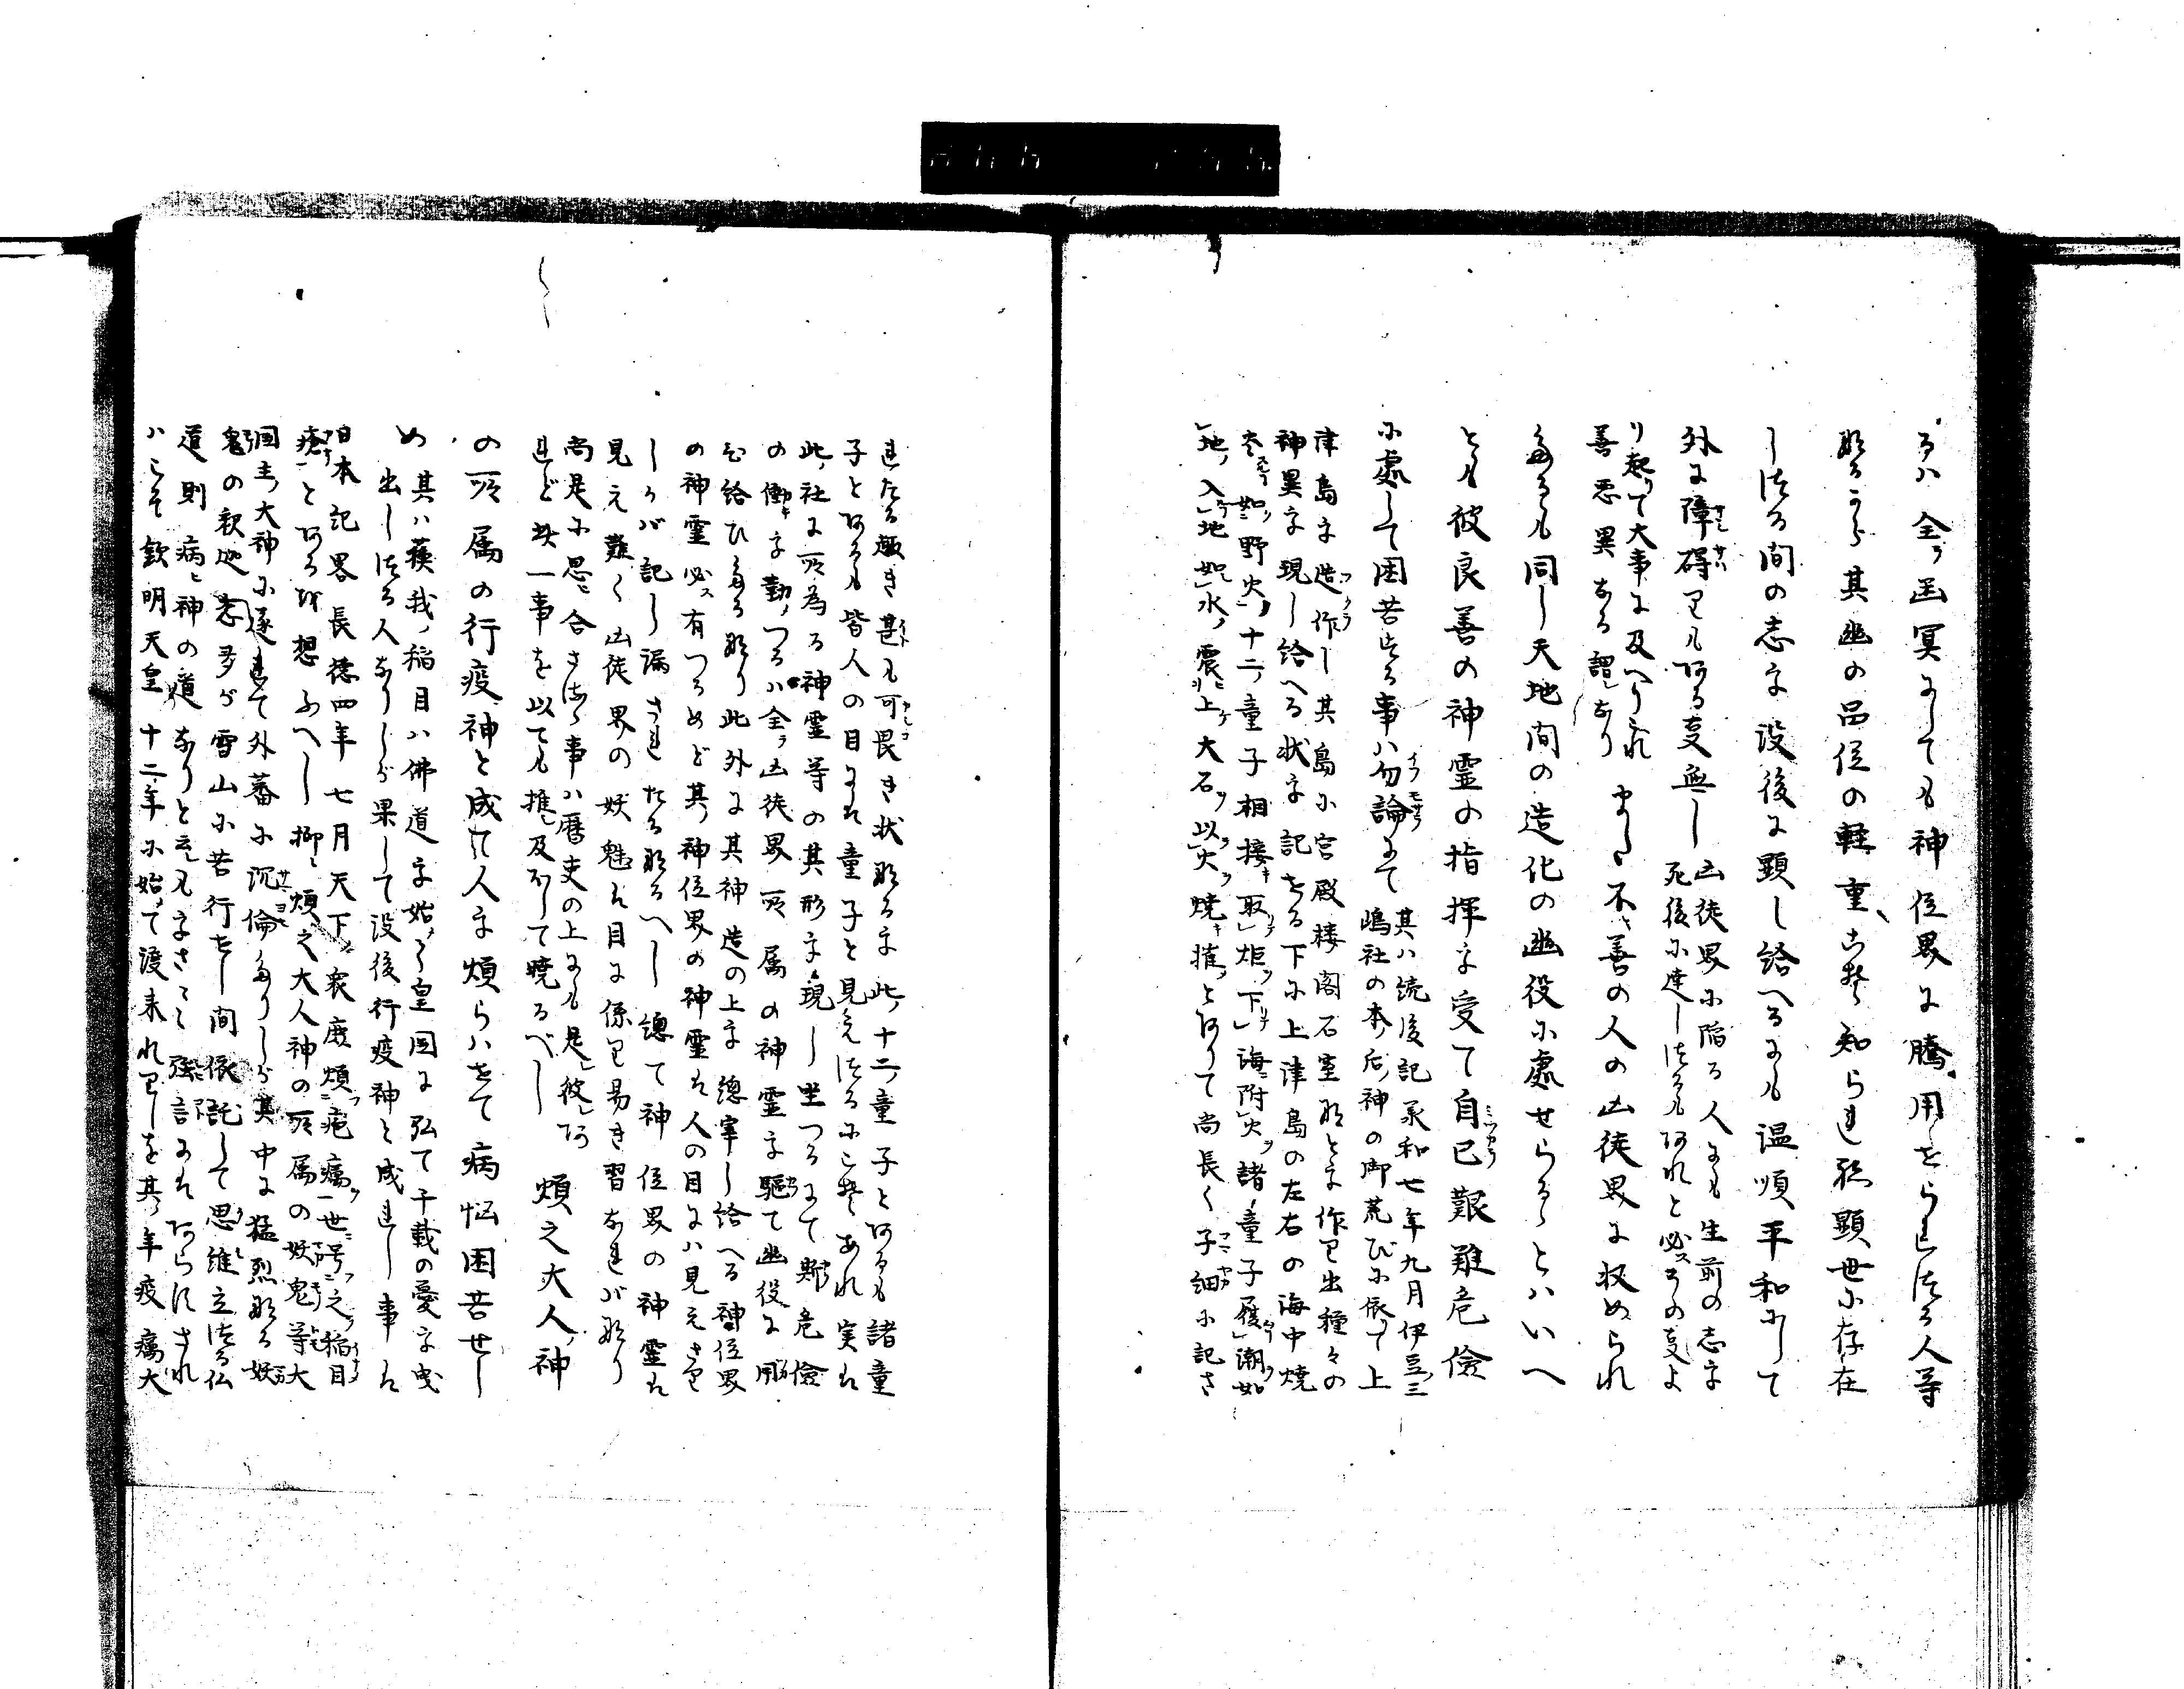 るハ全ラ幽冥にても神位界に騰用せられける人等
なるから其幽の品位の軽重こそ知られね顕世に存在
しける間の志を没後に顕し給へるにも温順平和にして
外に障碍りもある事無し
凶徒界に陥る人にも生前の志を
死後に達しけるもあれと必ス其の事よ
り起りて大事に及へりこれ
善悪異なる謂しなり
また不善の人の凶徒界に収められ
たるも同し天地間の造化の幽役に處せらるゝとハいへ
とも彼良善の神霊の指揮を受て自己艱難危険
に處して困苦する事ハ勿論にて
其ハ続後記承和七年九月伊豆ノ三
嶋社の本后ノ神の御荒びに依て上
津島を造作し其島に宮殿楼閣石室なとを作り出種々の
神異を現し給へる状を記せる下に上津島の左右の海中焼
炎如野火十二ノ童子相接取炬下海附火諸ノ童子履潮如
地ノ入地如水ノ震上大石以火焼摧とありて尚長く子細に記さ
れたる趣き甚も可畏き状なるを此ノ十二ノ童子とあるも諸童
子とあるも皆人の目にこそ童子と見えけるにこそあれ実は
此ノ社に所為る神霊等の其形を現し坐つるにて斯ル危険
の働キを勤ノつるハ全ラ凶徒界所属の神霊を駆て幽役に用
ひ給ひたるなり此外に其神造の上を總宰し給へる神位界
の神霊必ス有つらめど其ノ神位界の神霊は人の目にハ見えさり
しかバ記し漏されたるなるへし總て神位界の神霊は
見え難く凶徒界の妖魅は目に係り易き習なれバなり
尚是に思ヒ合さする事ハ暦史の上にも是レ彼レあ
れど此一事を以ても推シ及ほして暁るべし
煩之大人ノ神
の所属の行疫ノ神と成ては人を煩らハせて病悩困苦せし
め
其ハ蘇我ノ稲目ハ佛道を始めて皇国に弘て千載の憂を曳
出しける人なりしが果して没後行疫神と成れし事は
日本記畧長徳四年七月天下衆庶煩疱瘡世号之稲目
瘡とあるを想ふへし抑ミ煩之大人神の所属の妖鬼等大
国主ノ大神に逐はれて外蕃に沉倫たりしが其中に猛烈なる妖
鬼の釈迦悉多が雪山に苦行せし間依託して思維立ける仏
道則病ミ神の道なりと云ふもをさ〳〵強言にはあらすされ
ハこそ欽明天皇十二年に始て渡来れりしを其ノ年疫癘大